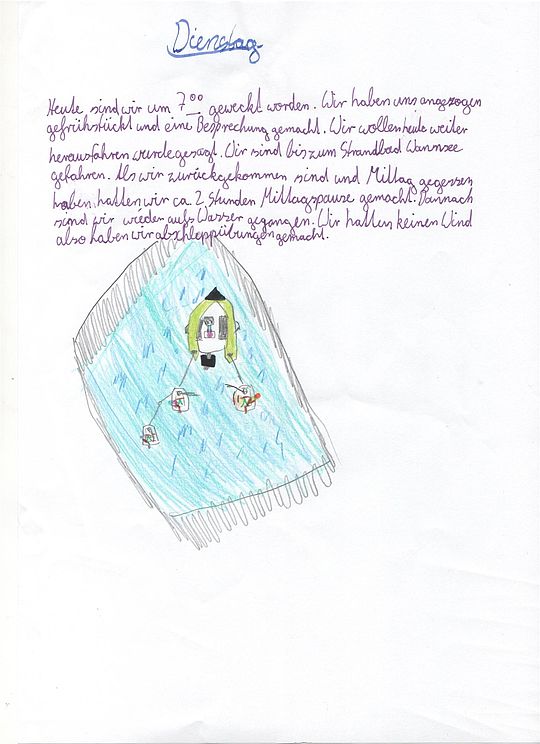 Dienstag
Heute sind wir um 7⁰⁰ geweckt worden. Wir haben uns angezogen
gefrühstückt und eine Besprechung gemacht. Wir wollen heute weiter
herausfahren wurde gesagt. Wir sind bis zum Strandbad Wannsee
gefahren. Als wir zurückgekommen sind und Mittag gegessen
haben, hatten wir ca. 2 Stunden Mittagspause gemacht. Dannach
sind wir wieder aufs Wasser gegangen. Wir hatten keinen Wind
also haben wir abschleppübungen gemacht.